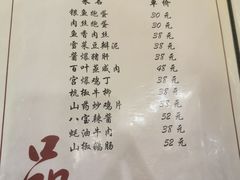 菜名 单价
银鱼炖蛋 30元
肉丝炖蛋 30元
鱼香肉丝 38元
官
酱爆猪肝 38元
百叶蒸咸肉 48元
宫爆鸡丁 38元
杭椒牛柳 38元
山药炒鸡片 38元
八宝辣酱 38元
蚝油牛肉 52元
山椒鹅肠 52元
品